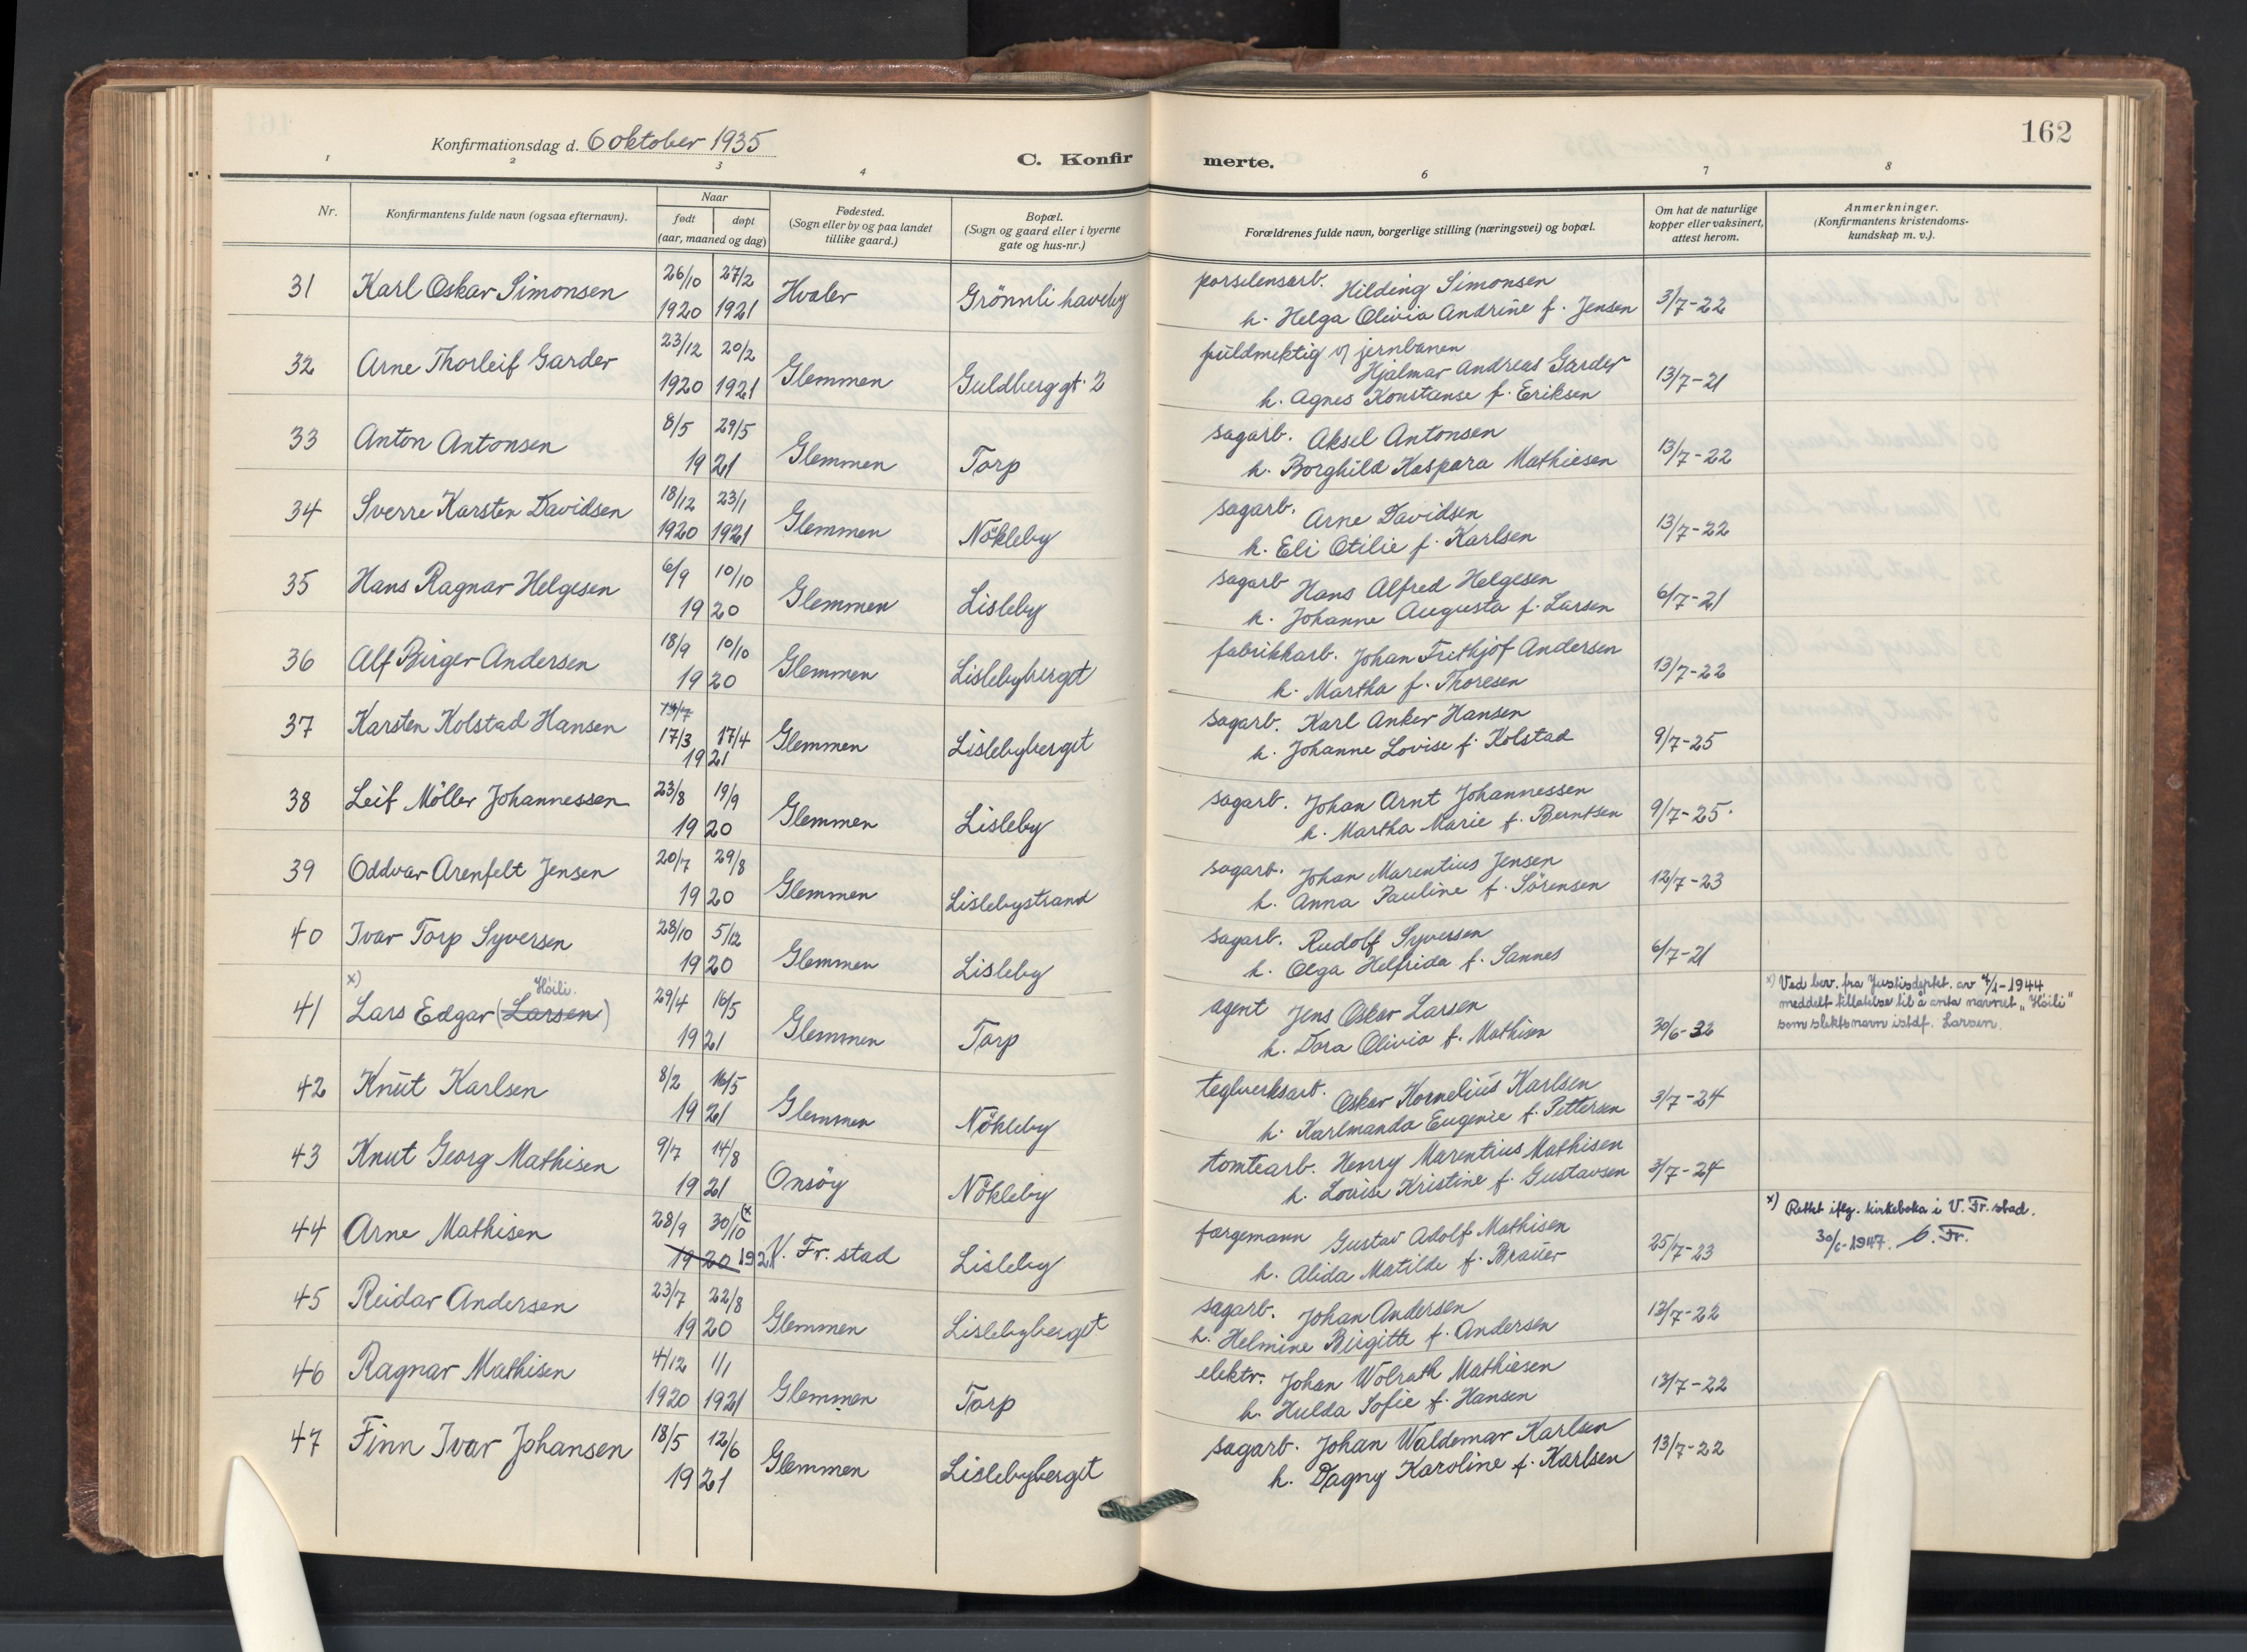 162
Konfirmationsdag d. 6 oktober 1935
C. Konfir merte.
1 2 3 4 6 7 8
Nr.
Konfirmantens fulde navn (ogsaa efternavn).
Naar
født døpt
(aar, maaned og dag)
Fødested.
(Sogn eller by og paa landet
tillike gaard.)
Bopæl.
(Sogn og gaard eller i byerne
gate og hus-nr.)
Forældrenes fulde navn, borgerlige stilling (næringsvei) og bopæl.
Om hat de naturlige
kopper eller vaksinert,
attest herom.
Anmerkninger.
(Konfirmantens kristendoms-
kundskap m. v.).
31 Karl Oskar Simonsen 26/10 27/2 Hvaler Grönnli haveby porselensarb. Hilding Simonsen
1920 1921 h. Helga Olivia Andrine f. Jensen 3/7-22
32 Arne Thorleif Garder 23/12 20/2 Glemmen Guldberg gt. 2 fuldmektig v/ jernbanen
Hjalmar Andreas Garder
1920 1921 h. Agnes Konstanse f. Eriksen 13/7-21
33 Anton Antonsen 8/5 29/5 Glemmen Torp sagarb. Aksel Antonsen
1921 h. Borghild Kaspara Mathiesen 13/7-22
34 Sverre Karsten Davidsen 18/12 23/1 Glemmen Nökleby sagarb. Arne Davidsen
1920 1921 h. Eli Otilie f. Karlsen 13/7-22
35 Hans Ragnar Helgesen 6/9 10/10 Glemmen Lisleby sagarb Hans Alfred Helgesen
1920 h. Johanne Augusta f. Larsen 6/7-21
36 Alf Birger Andersen 18/9 10/10 Glemmen Lislebyberget fabrikkarb. Johan Frithjof Andersen
1920 h. Martha f. Thoresen 13/7-22
37 Karsten Kolstad Hansen 17/3 17/4 Glemmen Lislebyberget sagarb. Karl Anker Hansen
1921 h. Johanne Lovise f. Kolstad 9/7-25
38 Leif Möller Johannessen 23/8 19/9 Glemmen Lisleby sagarb. Johan Arnt Johannessen
1920 h. Martha Marie f. Berntsen 9/7-25.
39 Oddvar Arenfelt Jensen 20/7 29/8 Glemmen Lislebystrand sagarb. Johan Marentius Jensen
1920 h. Anna Pauline f. Sörensen 12/7-23
40 Ivar Torp Syversen 28/10 5/12 Glemmen Lisleby sagarb. Rudolf Syversen
1920 h. Olga Helfrida f. Sannes 6/7-21
x) Höili.
41 Lars Edgar (Larsen) 29/4 16/5 Glemmen Torp agent Jens Oskar Larsen
1921 h. Dora Olivia f. Mathisen 30/6-32
x) Ved bev. fra Justisdeptet. av 4/1-1944
meddelt tillatelse til å anta navnet „Höili"
som slektsnavn istdf. Larsen.
42 Knut Karlsen 8/2 16/5 Glemmen Nökleby teglverksarb. Oskar Kornelius Karlsen
1921 h. Karlmanda Eugenie f. Pettersen 3/7-24
43 Knut Georg Mathisen 9/7 14/8 Onsöy Nökleby tomtearb. Henry Marentius Mathisen
1921 h. Louise Kristine f. Gustavsen 3/7-24
44 Arne Mathisen 28/9 30/10 (x V. Fr. stad Lisleby fargemann Gustav Adolf Mathisen
1920 1921 h. Alida Matilde f. Brauer 25/7-23
x) Rettet iflg. kirkeboka i V. Fr. stad.
30/6-1947. Fr.
45 Reidar Andersen 23/7 22/8 Glemmen Lislebyberget sagarb. Johan Andersen
1920 h. Helmine Birgitte f. Andersen 13/7-22
46 Ragnar Mathisen 4/12 1/1 Glemmen Torp elektr. Johan Wolrath Mathiesen
1920 1921 h. Hulda Sofie f. Hansen 13/7-22
47 Finn Ivar Johansen 18/5 12/6 Glemmen Lislebyberget sagarb. Johan Waldemar Karlsen
1921 h. Dagny Karoline f. Karlsen 13/7-22